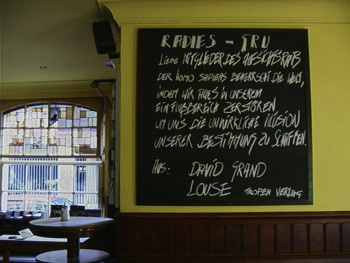 RADIES - GRU
Liebe MITGLIEDER DES AUFSICHTSRATS
DER HOMO SAPIENS BEHERRSCHT DIE WELT,
INDEM WIR ALLES IN UNSEREM
EINFLUßBEREICH ZERSTÖREN,
UM UNS DIE UNWIRKLICHE ILLUSION
UNSERER BESTIMMUNG ZU SCHAFFEN.
AUS: DAVID GRAND
LOUSE TROPEN VERLAG